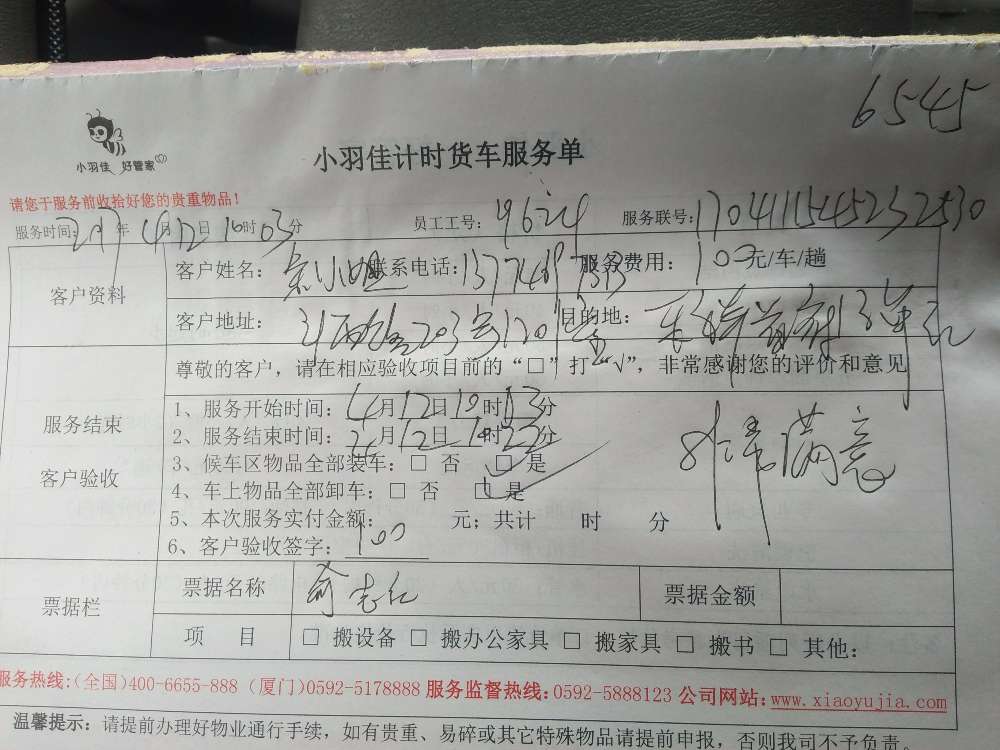 6545
小羽佳 好管家
小羽佳计时货车服务单
请您于服务前收拾好您的贵重物品!
服务时间: 2017年4月12日16时03分 员工工号: 服务联号:
客户资料
客户姓名: 小姐 联系电话: 服务费用: 100元/车/趟
客户地址: 203号1201室 目的地:
尊敬的客户，请在相应验收项目前的“□”打“√”，非常感谢您的评价和意见
服务结束
客户验收
1、服务开始时间: 4月12日 时 分
2、服务结束时间: 4月12日 时 分
3、候车区物品全部装车: □ 否 □ 是
4、车上物品全部卸车: □ 否 □ 是
5、本次服务实付金额: 元; 共计 时 分
6、客户验收签字: 100
非常满意
票据栏
票据名称 票据金额
项 目 □ 搬设备 □ 搬办公家具 □ 搬家具 □ 搬书 □ 其他:
服务热线:(全国)400-6655-888 (厦门)0592-5178888 服务监督热线:0592-5888123 公司网站:www.xiaoyujia.com
温馨提示: 请提前办理好物业通行手续，如有贵重、易碎或其它特殊物品请提前申报，否则我司不予负责。